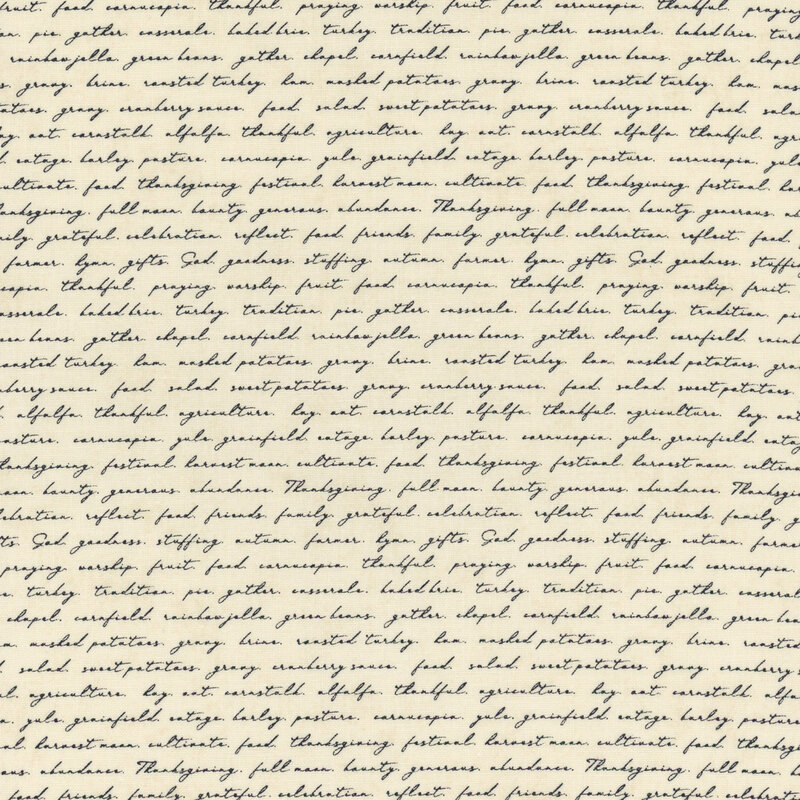 fruit. food. cornucopia. thankful. praying. worship. fruit. food. cornucopia. thankful. praying
pie. gather. casserole. baked brie. turkey. tradition. pie. gather. casserole. baked brie.
rainbow jello. green beans. gather. chapel. cornfield. rainbow jello. green beans. gather. chapel.
gravy. brine. roasted turkey. ham. mashed potatoes. gravy. brine. roasted turkey. ham.
gravy. cranberry sauce. food. salad. sweet potatoes. gravy. cranberry sauce. food.
oat. cornstalk. alfalfa. thankful. agriculture. hay. oat. cornstalk. alfalfa. thankful.
eatage. barley. pasture. cornucopia. yule. grainfield. eatage. barley. pasture. cornucopia. yule
food. thanksgiving. festival. harvest moon. cultivate. food. thanksgiving. festival.
full moon. bounty. generous. abundance. Thanksgiving. full moon. bounty. generous.
grateful. celebration. reflect. food. friends. family. grateful. celebration. reflect. food.
farmer. hymn. gifts. God. goodness. stuffing. autumn. farmer. hymn. gifts. God. goodness.
thankful. praying. worship. fruit. food. cornucopia. thankful. praying. worship. fruit.
baked brie. turkey. tradition. pie. gather. casserole. baked brie. turkey. tradition.
gather. chapel. cornfield. rainbow jello. green beans. gather. chapel. cornfield.
turkey. ham. mashed potatoes. gravy. brine. roasted turkey. ham. mashed potatoes.
sauce. food. salad. sweet potatoes. gravy. cranberry sauce. food. salad. sweet potatoes.
alfalfa. thankful. agriculture. hay. oat. cornstalk. alfalfa. thankful. agriculture. hay.
cornucopia. yule. grainfield. eatage. barley. pasture. cornucopia. yule. grainfield.
festival. harvest moon. cultivate. food. thanksgiving. festival. harvest moon.
bounty. generous. abundance. Thanksgiving. full moon. bounty. generous. abundance.
reflect. food. friends. family. grateful. celebration. reflect. food. friends. family.
God. goodness. stuffing. autumn. farmer. hymn. gifts. God. goodness. stuffing. autumn.
praying. worship. fruit. food. cornucopia. thankful. praying. worship. fruit. food. cornucopia.
turkey. tradition. pie. gather. casserole. baked brie. turkey. tradition. pie. gather.
chapel. cornfield. rainbow jello. green beans. gather. chapel. cornfield. rainbow jello. green
mashed potatoes. gravy. brine. roasted turkey. ham. mashed potatoes. gravy. brine. roasted
salad. sweet potatoes. gravy. cranberry sauce. food. salad. sweet potatoes. gravy. cranberry
agriculture. hay. oat. cornstalk. alfalfa. thankful. agriculture. hay. oat. cornstalk.
yule. grainfield. eatage. barley. pasture. cornucopia. yule. grainfield. eatage. barley. pasture
harvest moon. cultivate. food. thanksgiving. festival. harvest moon. cultivate. food.
abundance. Thanksgiving. full moon. bounty. generous. abundance. Thanksgiving. full moon.
food. friends. family. grateful. celebration. reflect. food. friends. family. grateful.